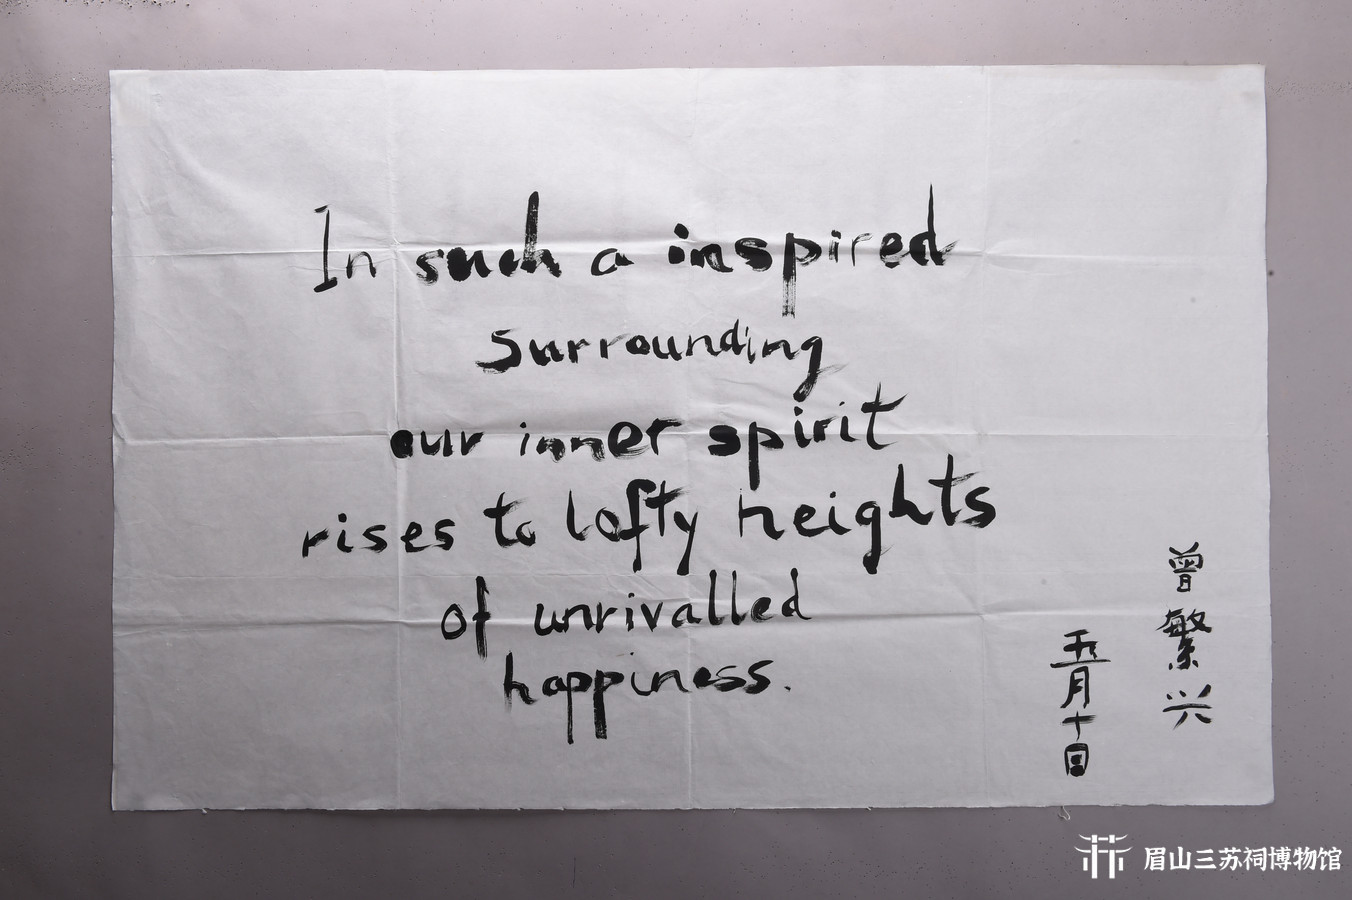 In such a inspired
surrounding
our inner spirit
rises to lofty heights
of unrivalled
happiness.
曾繁兴
五月十日
眉山三苏祠博物馆